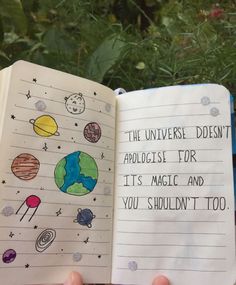 THE UNIVERSE DOESN'T
APOLOGISE FOR
ITS MAGIC AND
YOU SHOULDN'T TOO.